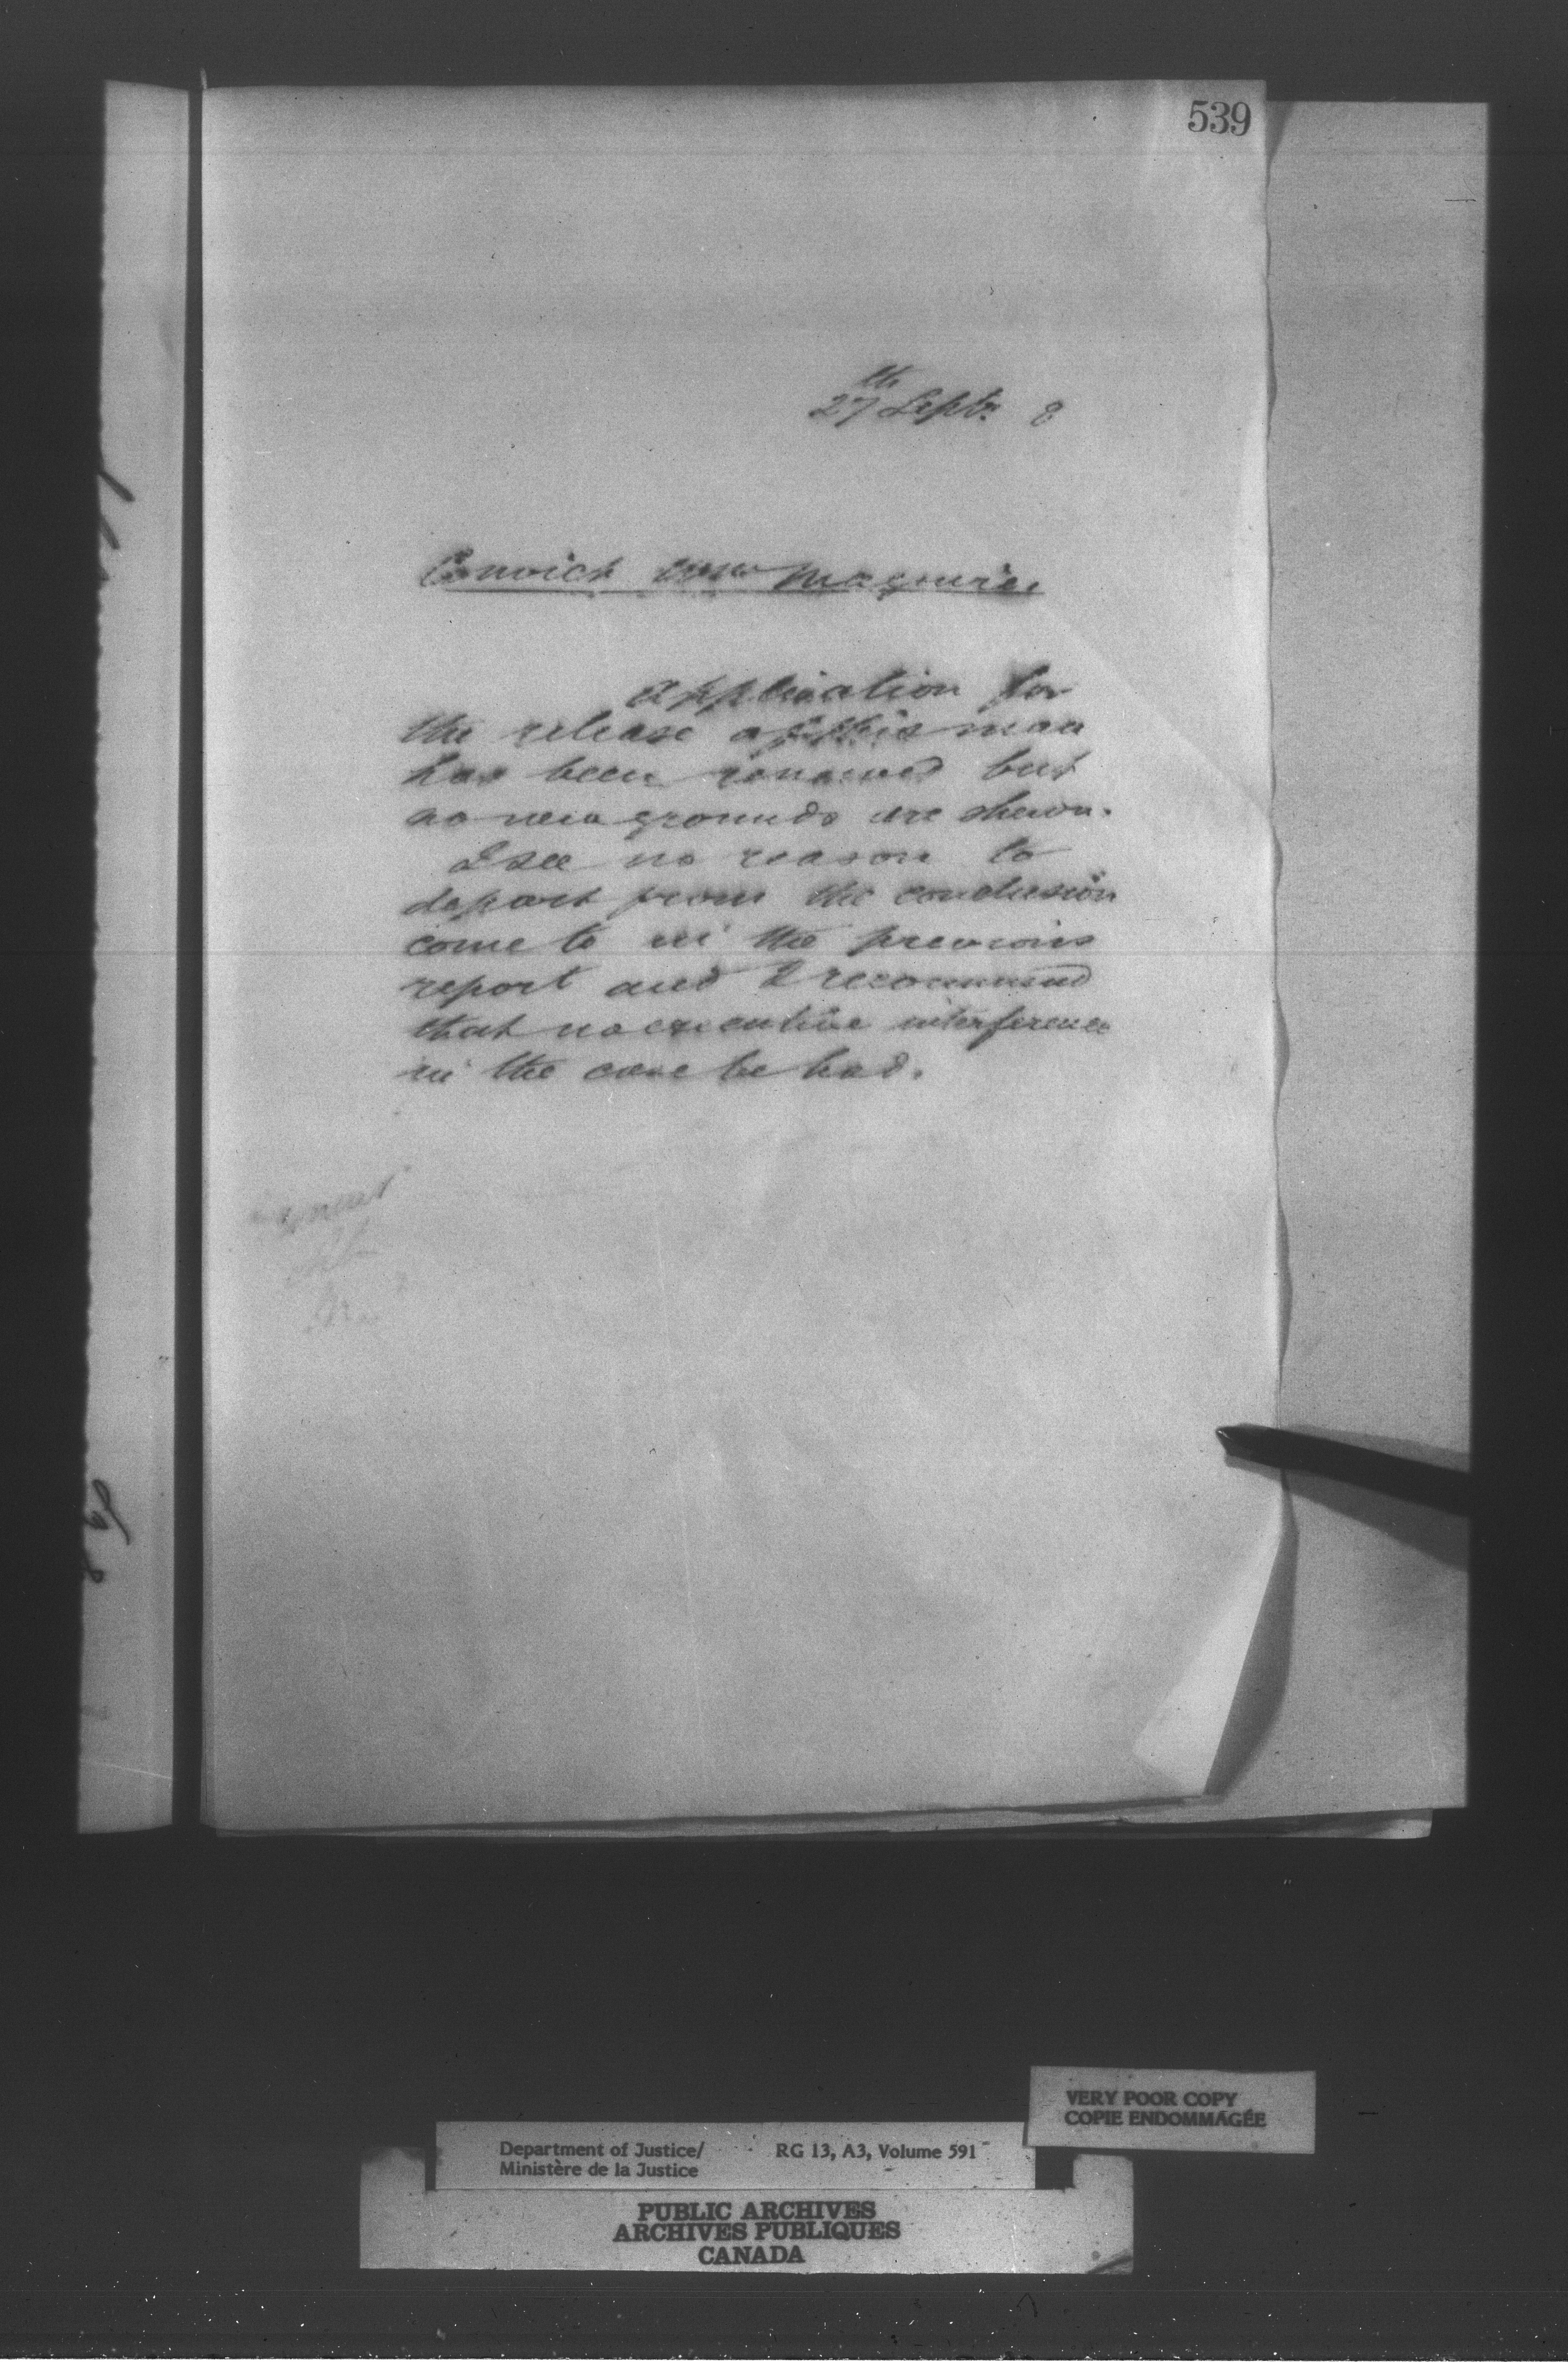 539
27th Septr 8
Convict Wm Maguire.
Application for
the release of this man
has been renewed but
no new grounds are shewn.
I see no reason to
depart from the conclusion
come to in the previous
report and I recommend
that no executive interference
in the case be had.
VERY POOR COPY
COPIE ENDOMMAGÉE
Department of Justice/ RG 13, A3, Volume 591
Ministère de la Justice
PUBLIC ARCHIVES
ARCHIVES PUBLIQUES
CANADA